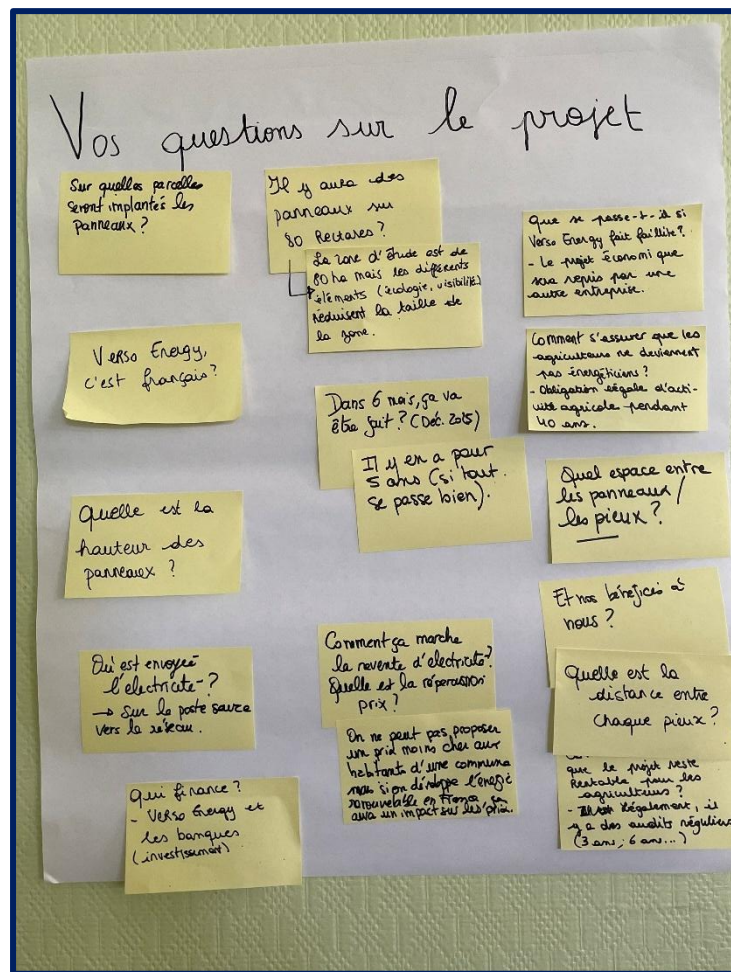 Vos questions sur le projet
Sur quelles parcelles
seront implantés les
panneaux ?
Verso Energy,
c'est français?
Quelle est la
hauteur des
panneaux ?
Où est envoyée
l'electricité ?
→ Sur le poste source
vers le réseau.
Qui finance ?
- Verso Energy et
les banques
(investissement)
Il y aura des
panneaux sur
80 Hectares ?
La zone d'étude est de
80 ha mais les différents
éléments (écologie, visibilité)
réduisent la taille de
la zone.
Dans 6 mois, ça va
être fait ? (Déc. 2025)
Il y en a pour
5 ans (si tout
se passe bien).
Comment ça marche
la revente d'électricité ?
Quelle est la répercussion
prix ?
On ne peut pas proposer
un prix moins cher aux
habitants d'une commune
mais si on développe l'énergie
renouvelable en France ça
aura un impact sur les prix.
Que se passe-t-il si
Verso Energy fait faillite?
- Le projet économique
sera repris par une
autre entreprise.
Comment s'assurer que les
agriculteurs ne deviennent
pas énergéticiens ?
- Obligation légale d'acti-
vité agricole pendant
40 ans.
Quel espace entre
les panneaux /
les pieux ?
Et nos bénéfices à
nous ?
Quelle est la
distance entre
chaque pieux ?
que le projet reste
rentable pour les
agriculteurs ?
- Légalement, il
y a des audits réguliers
(3 ans, 6 ans...)